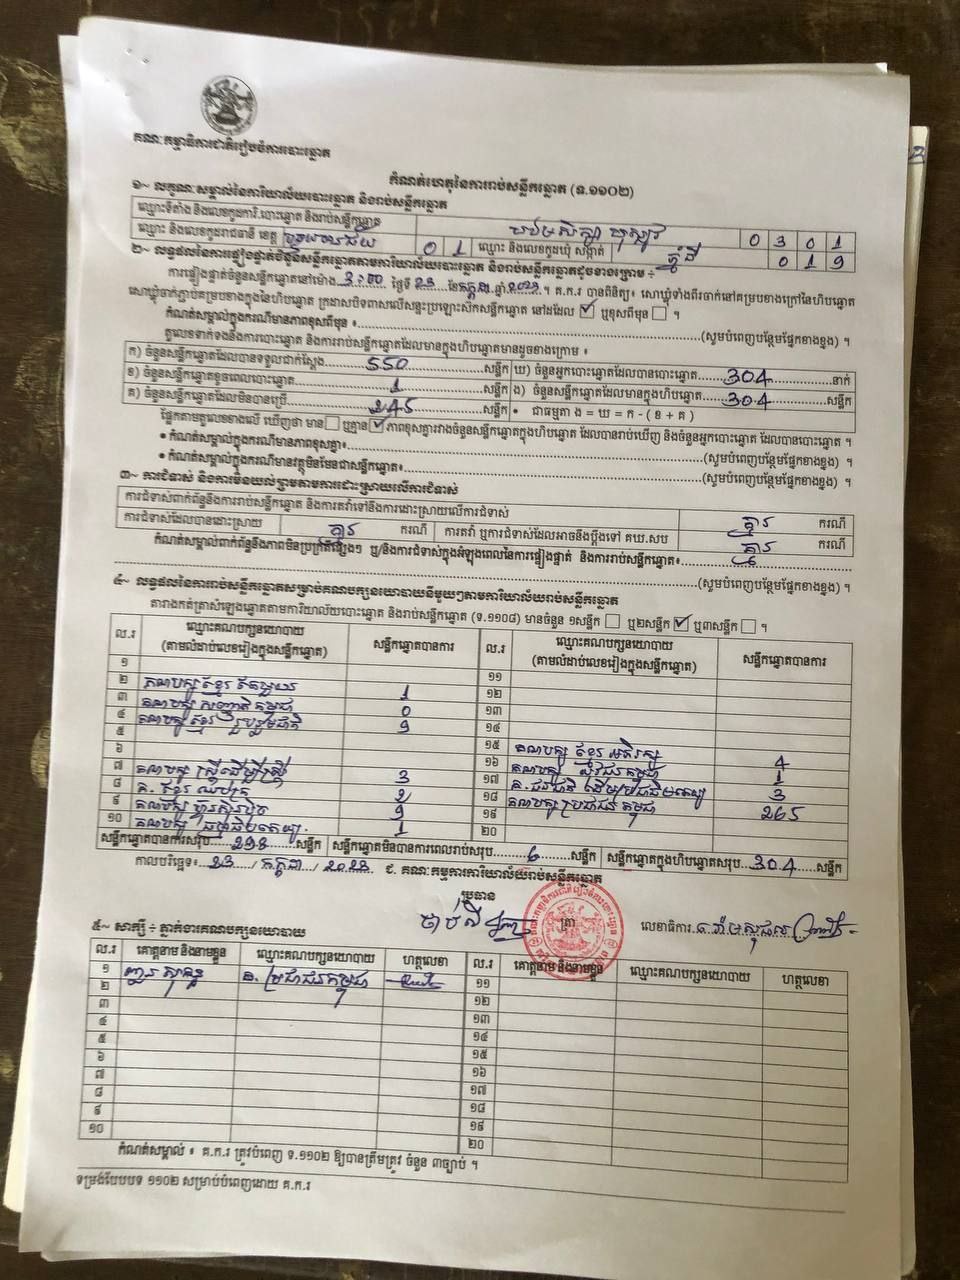 គណៈកម្មាធិការជាតិរៀបចំការបោះឆ្នោត
កំណត់ហេតុនៃការរាប់សន្លឹកឆ្នោត (ទ.១១០២)
១~ លក្ខណៈសម្គាល់នៃការិយាល័យបោះឆ្នោត និងរាប់សន្លឹកឆ្នោត
ឈ្មោះទីតាំង និងលេខកូដការិ.បោះឆ្នោត និងរាប់សន្លឹកឆ្នោត 0 3 0 1
ឈ្មោះ និងលេខកូដរាជធានី ខេត្ត បន្ទាយមានជ័យ 0 1 ឈ្មោះ និងលេខកូដឃុំ សង្កាត់ 0 1 9
២~ លទ្ធផលនៃការផ្ទៀងផ្ទាត់ចំនួនសន្លឹកឆ្នោតតាមការិយាល័យបោះឆ្នោត និងរាប់សន្លឹកឆ្នោតដូចខាងក្រោម ÷
ការផ្ទៀងផ្ទាត់ចំនួនសន្លឹកឆ្នោតនៅម៉ោង 3:00 ថ្ងៃទី 23 ខែ កក្កដា ឆ្នាំ 2023 ។ គ.ក.រ បានពិនិត្យ៖ សោឃ្លុំទាំងពីរចាក់នៅគម្របខាងក្រៅនៃហិបឆ្នោត
សោឃ្លុំចាក់ភ្ជាប់គម្របខាងក្នុងនៃហិបឆ្នោត ក្រដាសបិទពាសលើសន្ទះប្រឡោះសិកសន្លឹកឆ្នោត នៅដដែល ✓ ឬខុសពីមុន ។
កំណត់សម្គាល់ក្នុងករណីមានភាពខុសពីមុន ៖ (សូមបំពេញបន្ថែមផ្នែកខាងខ្នង) ។
តួលេខទាក់ទងនឹងការបោះឆ្នោត និងការរាប់សន្លឹកឆ្នោតដែលមានក្នុងហិបឆ្នោតមានដូចខាងក្រោម ៖
ក) ចំនួនសន្លឹកឆ្នោតដែលបានទទួលជាក់ស្តែង 550 សន្លឹក ឃ) ចំនួនអ្នកបោះឆ្នោតដែលបានបោះឆ្នោត 304 នាក់
ខ) ចំនួនសន្លឹកឆ្នោតខូចពេលបោះឆ្នោត 1 សន្លឹក ង) ចំនួនសន្លឹកឆ្នោតដែលមានក្នុងហិបឆ្នោត 304 សន្លឹក
គ) ចំនួនសន្លឹកឆ្នោតដែលមិនបានប្រើ 245 សន្លឹក • ជាធម្មតា ង = ឃ = ក - ( ខ + គ )
ផ្អែកតាមតួលេខខាងលើ ឃើញថា មាន ឬគ្មាន ✓ ភាពខុសគ្នារវាងចំនួនសន្លឹកឆ្នោតក្នុងហិបឆ្នោត ដែលបានរាប់ឃើញ និងចំនួនអ្នកបោះឆ្នោត ដែលបានបោះឆ្នោត ។
• កំណត់សម្គាល់ក្នុងករណីមានភាពខុសគ្នា៖ (សូមបំពេញបន្ថែមផ្នែកខាងខ្នង) ។
• កំណត់សម្គាល់ក្នុងករណីមានវត្ថុមិនមែនជាសន្លឹកឆ្នោត៖ (សូមបំពេញបន្ថែមផ្នែកខាងខ្នង) ។
៣~ ការជំទាស់ និងការមិនយល់ព្រមតាមការដោះស្រាយលើការជំទាស់
ការជំទាស់ពាក់ព័ន្ធនឹងការរាប់សន្លឹកឆ្នោត និងការតវ៉ាទៅនឹងការដោះស្រាយលើការជំទាស់ គ្មាន ករណី
ការជំទាស់ដែលបានដោះស្រាយ គ្មាន ករណី ការតវ៉ា ឬការជំទាស់ដែលអាចនឹងប្តឹងទៅ គឃ.សប គ្មាន ករណី
កំណត់សម្គាល់ពាក់ព័ន្ធនឹងភាពមិនប្រក្រតីផ្សេងៗ ឬ/និងការជំទាស់ក្នុងអំឡុងពេលនៃការផ្ទៀងផ្ទាត់ និងការរាប់សន្លឹកឆ្នោត៖
(សូមបំពេញបន្ថែមផ្នែកខាងខ្នង) ។
៤~ លទ្ធផលនៃការរាប់សន្លឹកឆ្នោតសម្រាប់គណបក្សនយោបាយនីមួយៗតាមការិយាល័យរាប់សន្លឹកឆ្នោត
តារាងកត់ត្រាសំឡេងឆ្នោតតាមការិយាល័យបោះឆ្នោត និងរាប់សន្លឹកឆ្នោត (ទ.១១០៨) មានចំនួន ១សន្លឹក ឬ២សន្លឹក ✓ ឬ៣សន្លឹក ។
ល.រ ឈ្មោះគណបក្សនយោបាយ សន្លឹកឆ្នោតបានការ ល.រ ឈ្មោះគណបក្សនយោបាយ សន្លឹកឆ្នោតបានការ
(តាមលំដាប់លេខរៀងក្នុងសន្លឹកឆ្នោត) (តាមលំដាប់លេខរៀងក្នុងសន្លឹកឆ្នោត)
១ ១១
២ គណបក្ស ខ្មែរ 1 ១២
៣ គណបក្ស កម្ពុជា 0 ១៣
៤ គណបក្ស ខ្មែរ រួបរួមជាតិ 9 ១៤
៥ ១៥ គណបក្ស ខ្មែរ អភិរក្ស 4
៦ ១៦ គណបក្ស កម្ពុជា 1
៧ គណបក្ស ស្ត្រីដើម្បីស្ត្រី 3 ១៧ 3
៨ ១៨ គណបក្ស ប្រជាជន កម្ពុជា 265
៩ គណបក្ស ១៩
១០ គណបក្ស 1 ២០
សន្លឹកឆ្នោតបានការសរុប 298 សន្លឹក សន្លឹកឆ្នោតមិនបានការពេលរាប់សរុប 6 សន្លឹក សន្លឹកឆ្នោតក្នុងហិបឆ្នោតសរុប 304 សន្លឹក
កាលបរិច្ឆេទ៖ 23 / កក្កដា / 2023 ជ. គណៈកម្មការការិយាល័យរាប់សន្លឹកឆ្នោត
ប្រធាន
ត្រា
លេខាធិការ
៥~ សាក្សី ÷ ភ្នាក់ងារគណបក្សនយោបាយ
ល.រ គោត្តនាម និងនាមខ្លួន ឈ្មោះគណបក្សនយោបាយ ហត្ថលេខា ល.រ គោត្តនាម និងនាមខ្លួន ឈ្មោះគណបក្សនយោបាយ ហត្ថលេខា
១ គ. ប្រជាជនកម្ពុជា ១១
២ ១២
៣ ១៣
៤ ១៤
៥ ១៥
៦ ១៦
៧ ១៧
៨ ១៨
៩ ១៩
១០ ២០
កំណត់សម្គាល់ ៖ គ.ក.រ ត្រូវបំពេញ ទ.១១០២ ឱ្យបានត្រឹមត្រូវ ចំនួន ៣ច្បាប់ ។
ទម្រង់បែបបទ ១១០២ សម្រាប់បំពេញដោយ គ.ក.រ